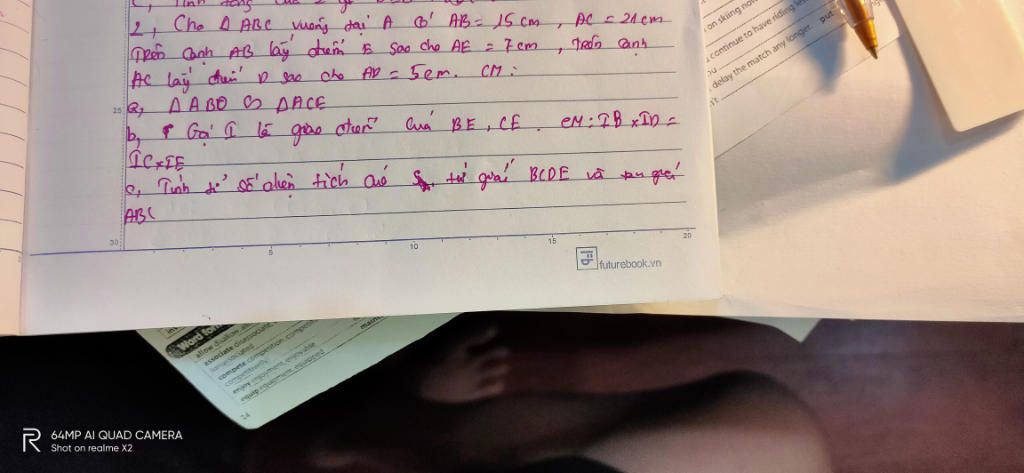 2, Cho Δ ABC vuông tại A có AB = 15 cm, AC = 21 cm
Trên cạnh AB lấy điểm E sao cho AE = 7 cm, trên cạnh
AC lấy điểm D sao cho AD = 5 cm. CM:
25
a, Δ ABD ∽ Δ ACE
b, Gọi I là giao điểm của BE, CE. CM: IB × ID =
IC × IE
c, Tính tỉ số diện tích của tứ giác BCDE và tam giác
ABC
30 5 10 15 20
futurebook.vn
on skiing now
continue to have riding less
put
delay the match any longer.
Word for
associate
compete competition
enjoy enjoyment enjoyable
equip equipment equipped
24
R 64MP AI QUAD CAMERA
Shot on realme X2